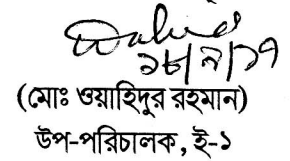 ১৮/৯/১৭
(মোঃ ওয়াহিদুর রহমান)
উপ-পরিচালক, ই-১